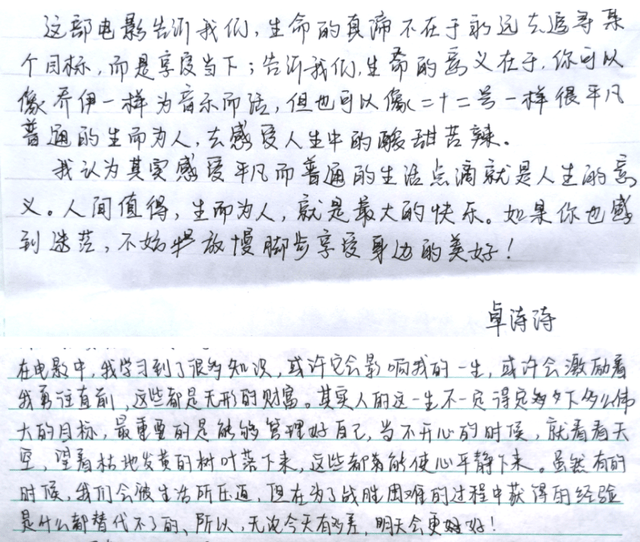 这部电影告诉我们，生命的真谛不在于永远去追寻某
个目标，而是享受当下；告诉我们，生命的意义在于，你可以
像乔伊一样为音乐而活，但也可以像二十二号一样很平凡
普通的生而为人，去感受人生中的酸甜苦辣。
我认为其实感受平凡而普通的生活点滴就是人生的意
义。人间值得，生而为人，就是最大的快乐。如果你也感
到迷茫，不妨放慢脚步享受身边的美好！
卓诗诗
在电影中，我学习到了很多知识，或许它会影响我的一生，或许会激励着
我勇往直前，这些都是无形的财富。其实人的这一生不一定得定多么伟
大的目标，最重要的是能够管理好自己，当不开心的时候，就看看天
空，望着枯地发黄的树叶落下来，这些都能使心平静下来。虽然有的
时候，我们会被生活所压迫，但在为了战胜困难的过程中获得的经验
是什么都替代不了的，所以，无论今天有多差，明天会更好！